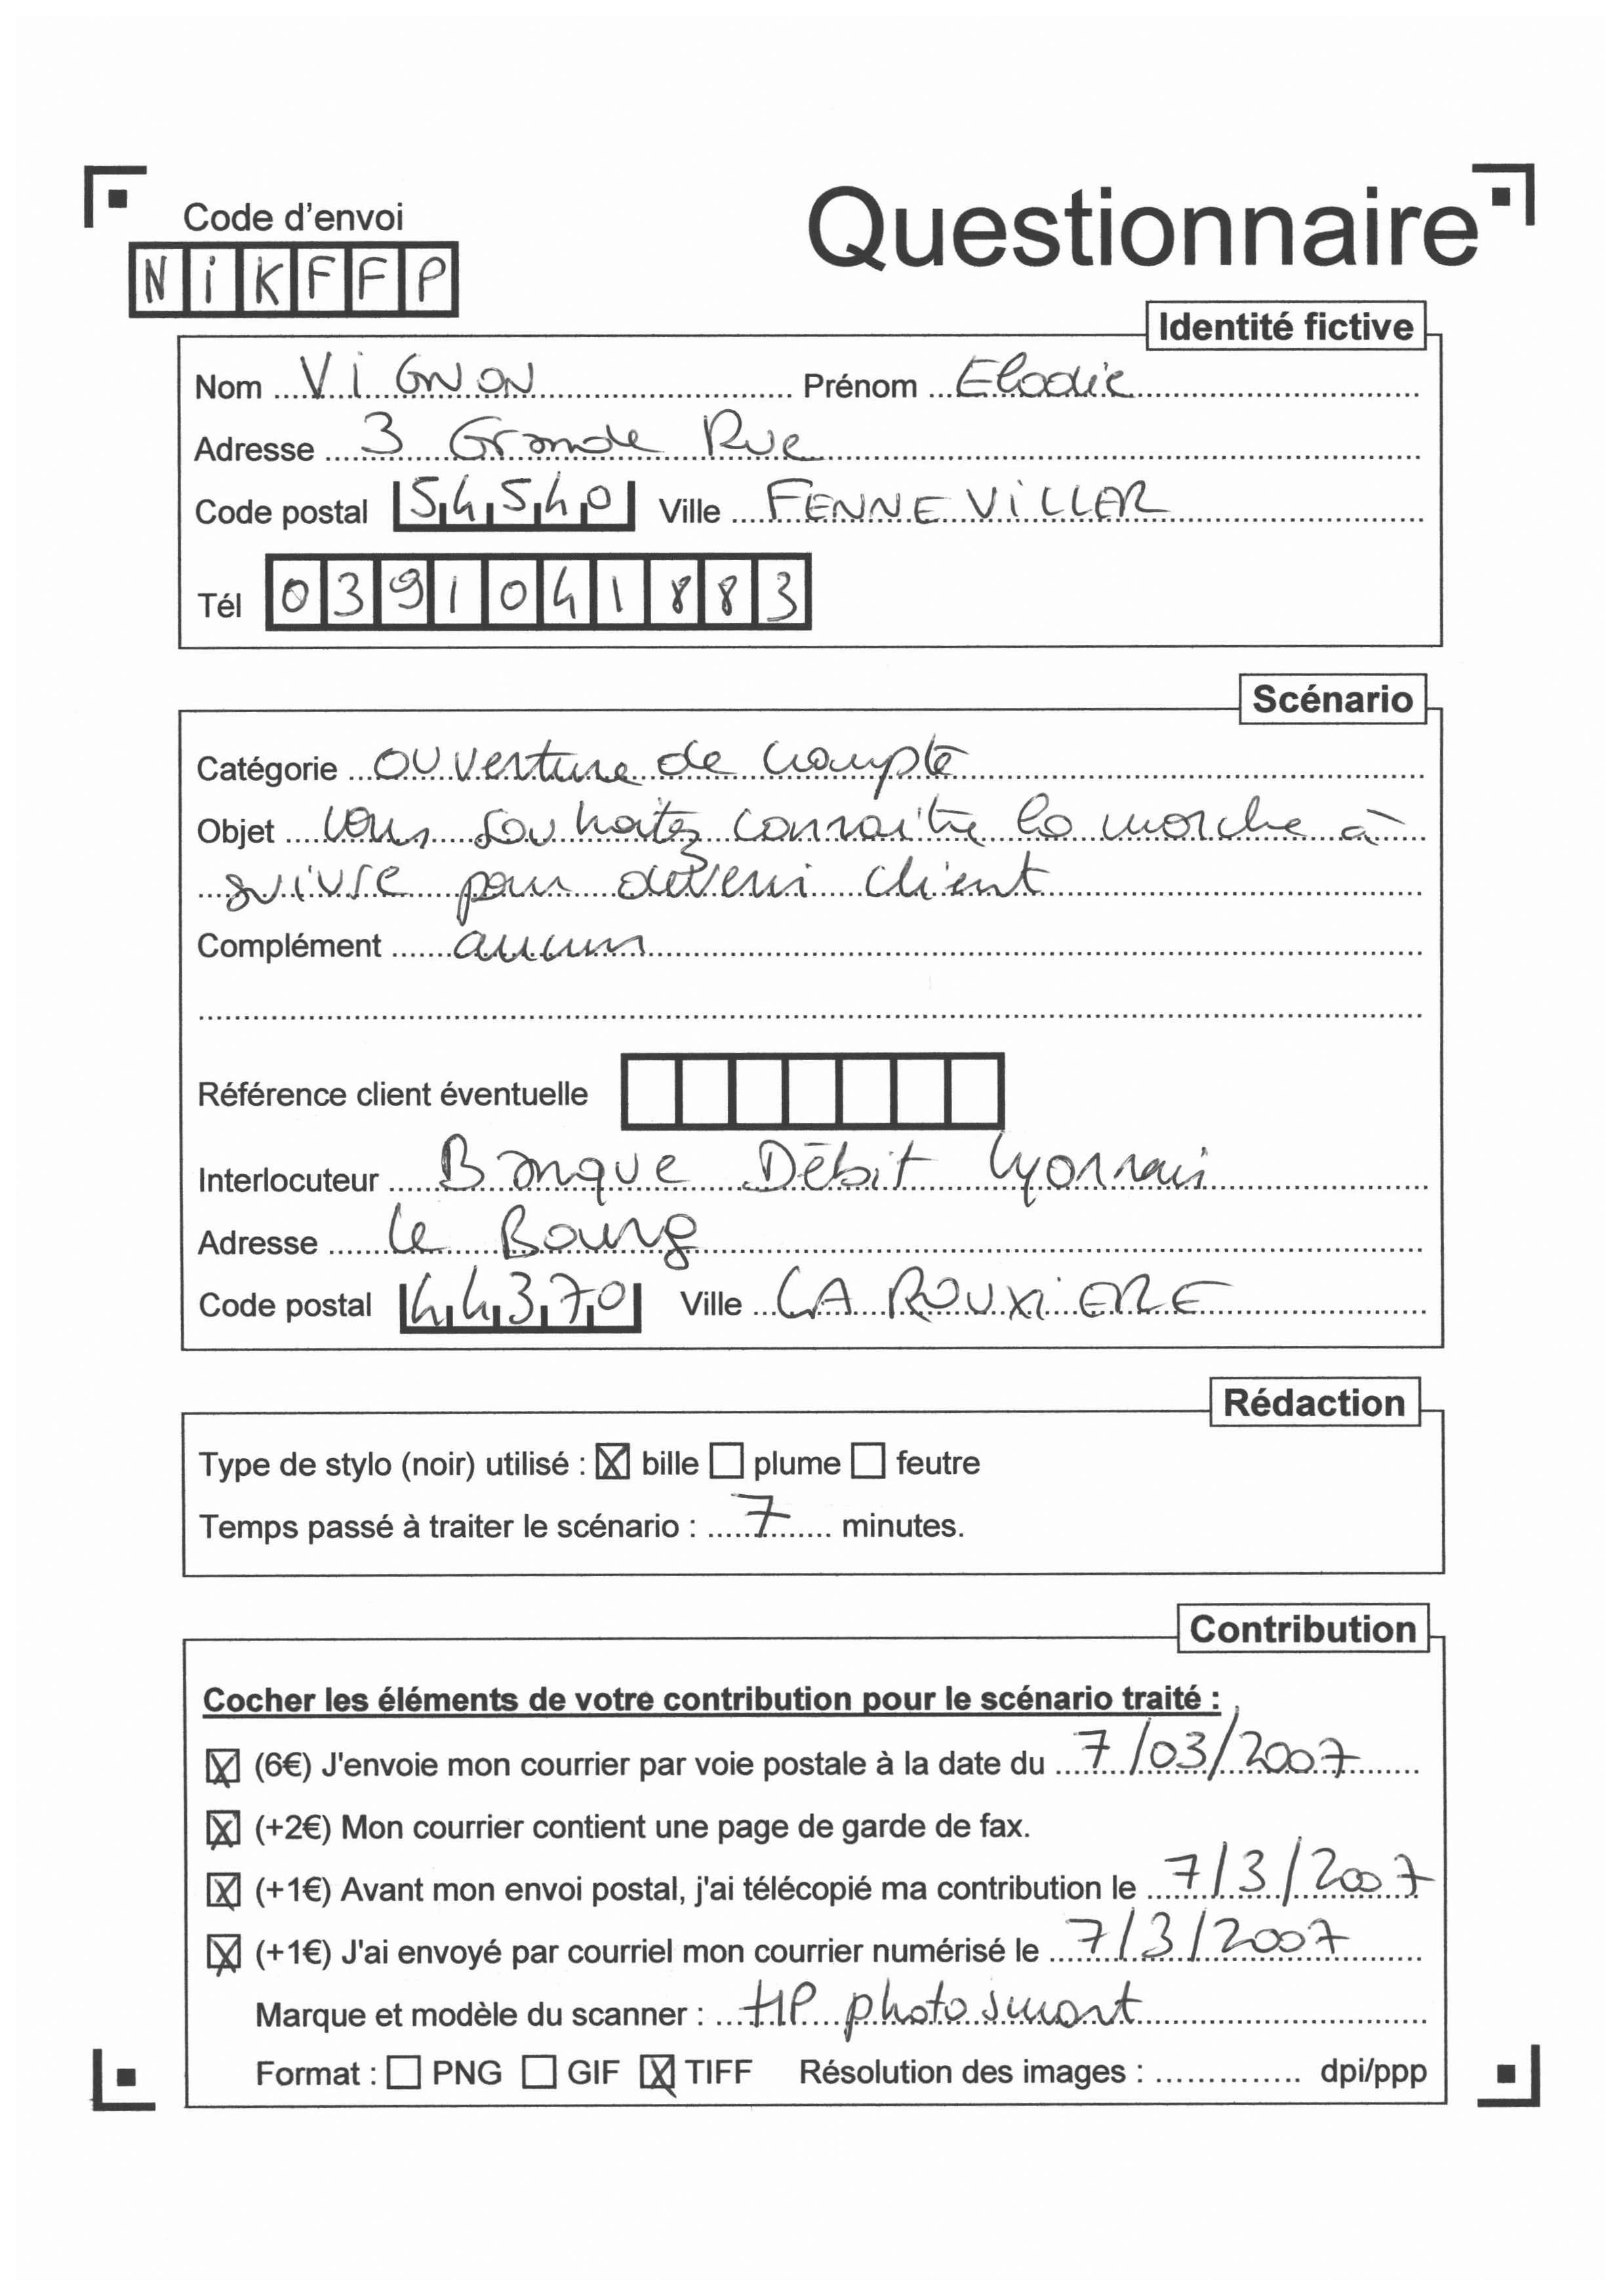 Code d'envoi
NiKFFP
Questionnaire
Identité fictive
Nom ViGNON Prénom Elodie
Adresse 3 Grande Rue
Code postal 54540 Ville FENNEViLLER
Tél 0391041883
Scénario
Catégorie ouverture de compte
Objet vous souhaitez connaitre la marche à
suivre pour devenir client
Complément aucun
Référence client éventuelle
Interlocuteur Banque Débit Lyonnais
Adresse Le Bourg
Code postal 44370 Ville LA ROUXiERE
Rédaction
Type de stylo (noir) utilisé : bille plume feutre
Temps passé à traiter le scénario : 7 minutes.
Contribution
Cocher les éléments de votre contribution pour le scénario traité :
(6€) J'envoie mon courrier par voie postale à la date du 7/03/2007
(+2€) Mon courrier contient une page de garde de fax.
(+1€) Avant mon envoi postal, j'ai télécopié ma contribution le 7/3/2007
(+1€) J'ai envoyé par courriel mon courrier numérisé le 7/3/2007
Marque et modèle du scanner : HP photosmart
Format : PNG GIF TIFF Résolution des images : dpi/ppp